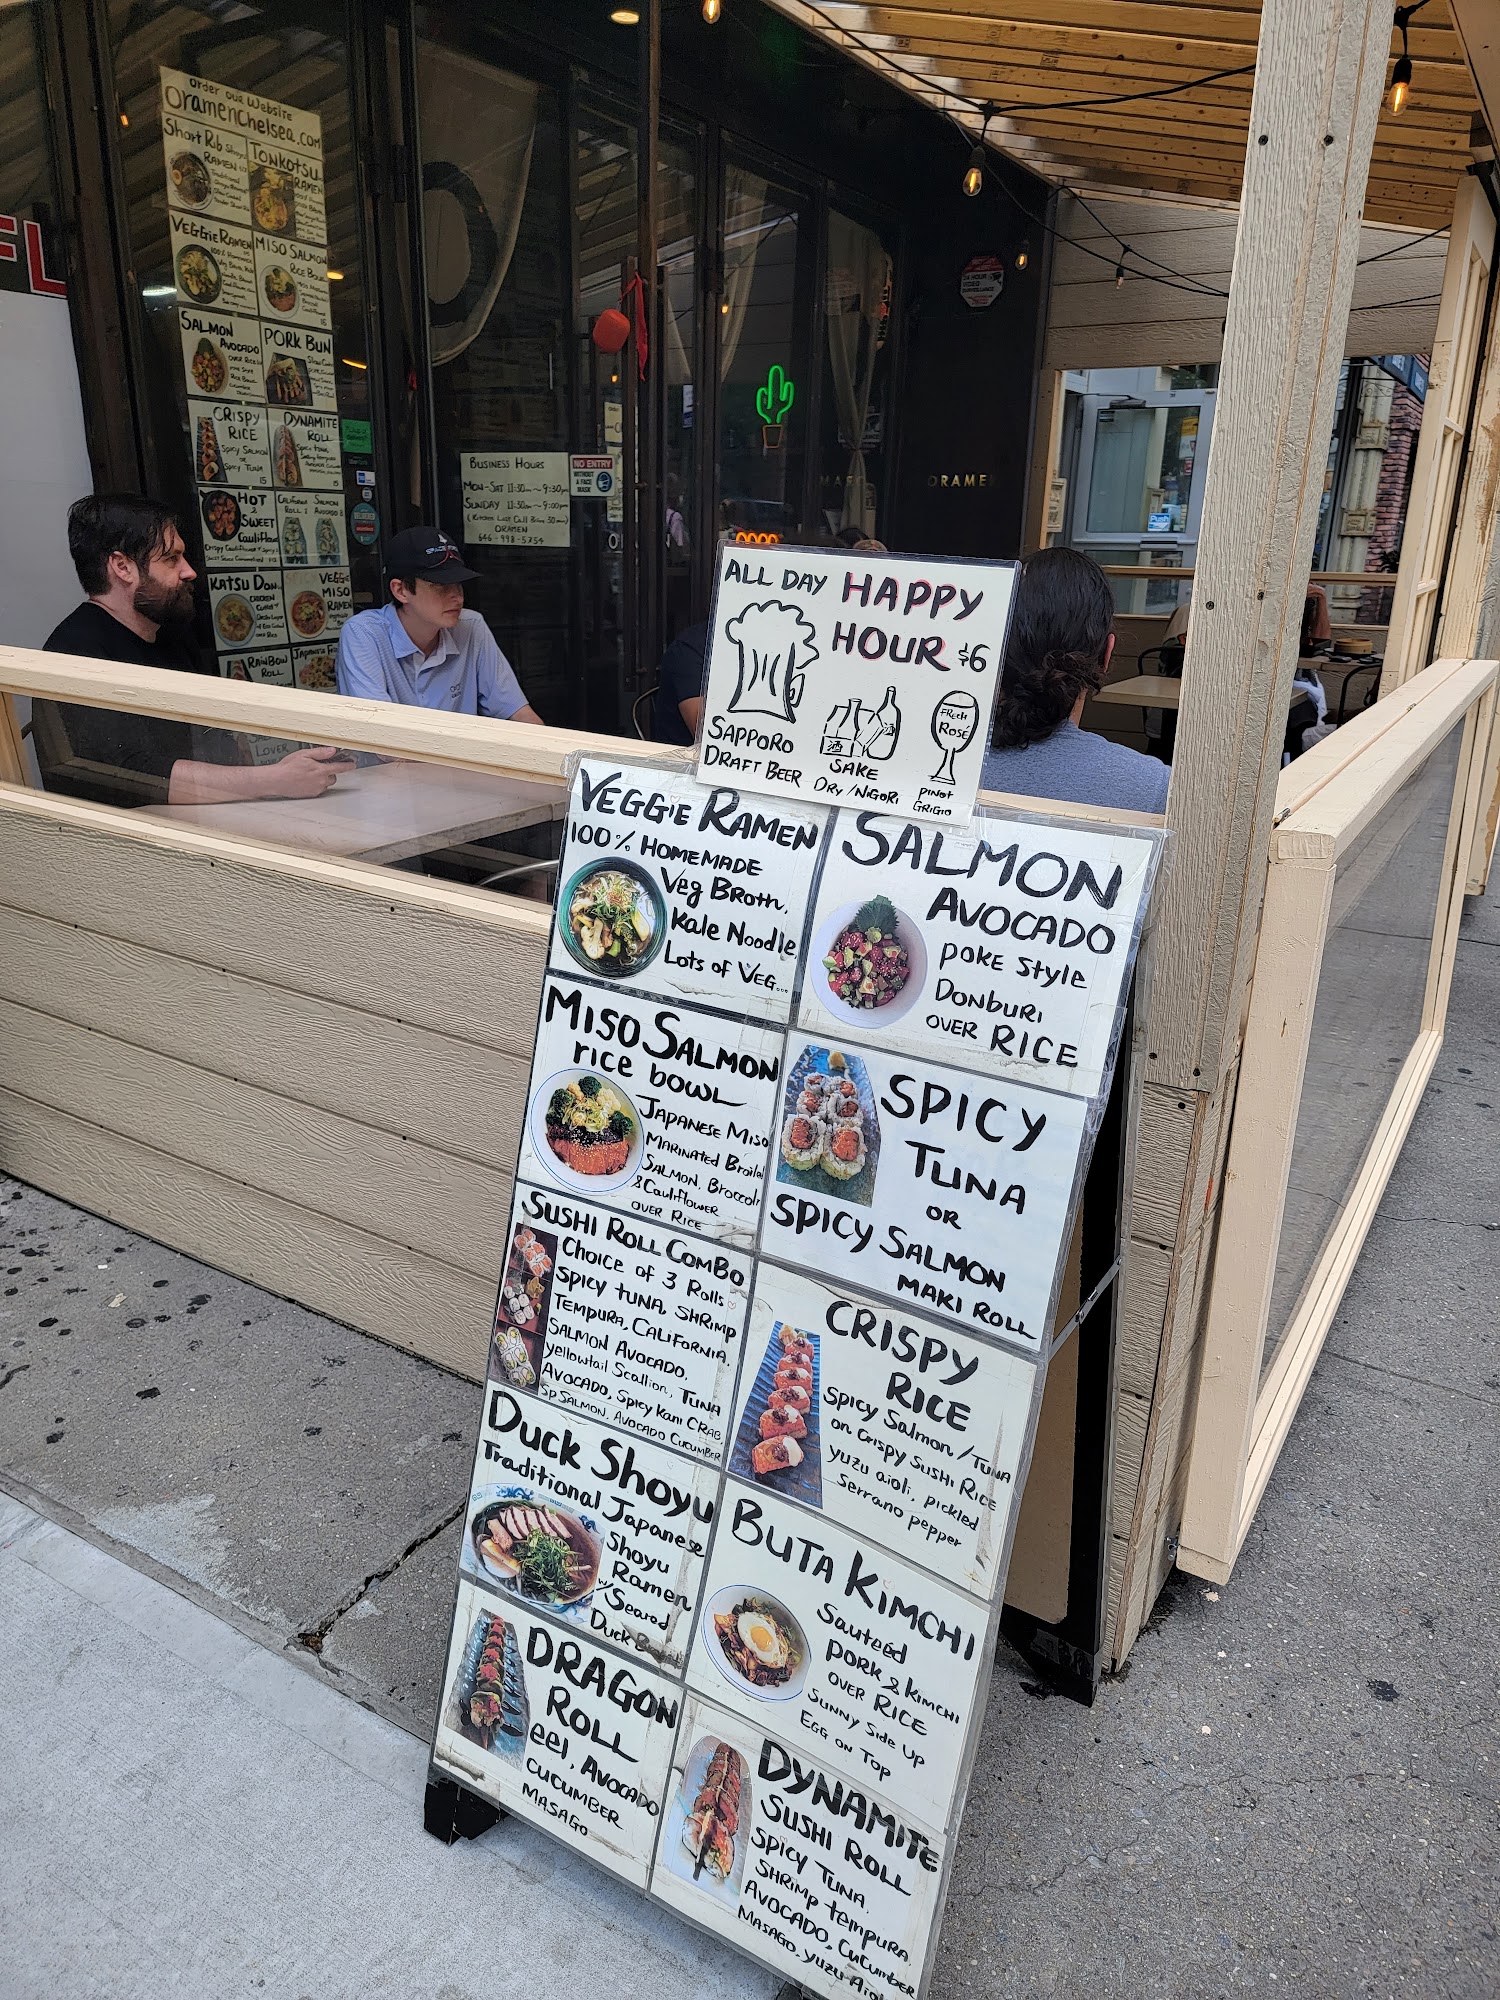 order our website
oramenchelsea.com
Short Rib Shoyu
RAMEN
TONKOTSU
RAMEN
VEGGIE RAMEN
100% Homemade
MISO SALMON
RICE BOWL
SALMON
AVOCADO
OVER RICE
POKE STYLE
RICE BOWL
PORK BUN
CRISPY
RICE
SPICY SALMON
OR
SPICY TUNA
15
DYNAMITE
ROLL
15
HOT
&
SWEET
Cauliflower
CALIFORNIA
ROLL
SALMON
AVOCADO
KATSU DON
CHICKEN
VEGGIE
MISO
RAMEN
RAINBOW
ROLL
LOVER
FL
BUSINESS HOURS
MON-SAT 11:30am ~ 9:30pm
SUNDAY 11:30am ~ 9:00pm
(Kitchen Last Call Before 30 min)
ORAMEN
646-998-5754
NO ENTRY
WITHOUT
A FACE
MASK
24 HOUR
VIDEO
SURVEILLANCE
ORAME
Push
ALL DAY HAPPY
HOUR $6
SAPPORO
DRAFT BEER
酒
SAKE
DRY/NIGORI
FRECH
ROSÉ
PINOT
GRIGIO
VEGGIE RAMEN
100% HOMEMADE
Veg BROTH,
Kale Noodle,
Lots of VEG...
SALMON
AVOCADO
POKE Style
DONBURI
OVER RICE
MISO SALMON
rice bowl
JAPANESE MISO
MARINATED Broiled
SALMON, Broccoli
& Cauliflower
OVER RICE
SPICY
TUNA
OR
SPICY SALMON
MAKI ROLL
SUSHI ROLL COMBO
Choice of 3 Rolls
SPICY TUNA, SHRIMP
TEMPURA, CALIFORNIA,
SALMON AVOCADO,
yellowtail Scallion, TUNA
AVOCADO, Spicy Kani CRAB,
SP SALMON, AVOCADO CUCUMBER
CRISPY
RICE
SPICY Salmon/TUNA
on Crispy SUSHI RICE
yuzu aioli, pickled
Serrano pepper
Duck Shoyu
Traditional Japanese
Shoyu
Ramen
w/ Seared
Duck
BUTA KIMCHI
Sauteed
PORK & KIMCHI
OVER RICE
SUNNY Side Up
EGG ON TOP
DRAGON
ROLL
eel, AVOCADO
CUCUMBER
MASAGO
DYNAMITE
SUSHI ROLL
SPICY TUNA,
SHRIMP tempura,
AVOCADO, Cucumber
MASAGO, yuzu Aioli